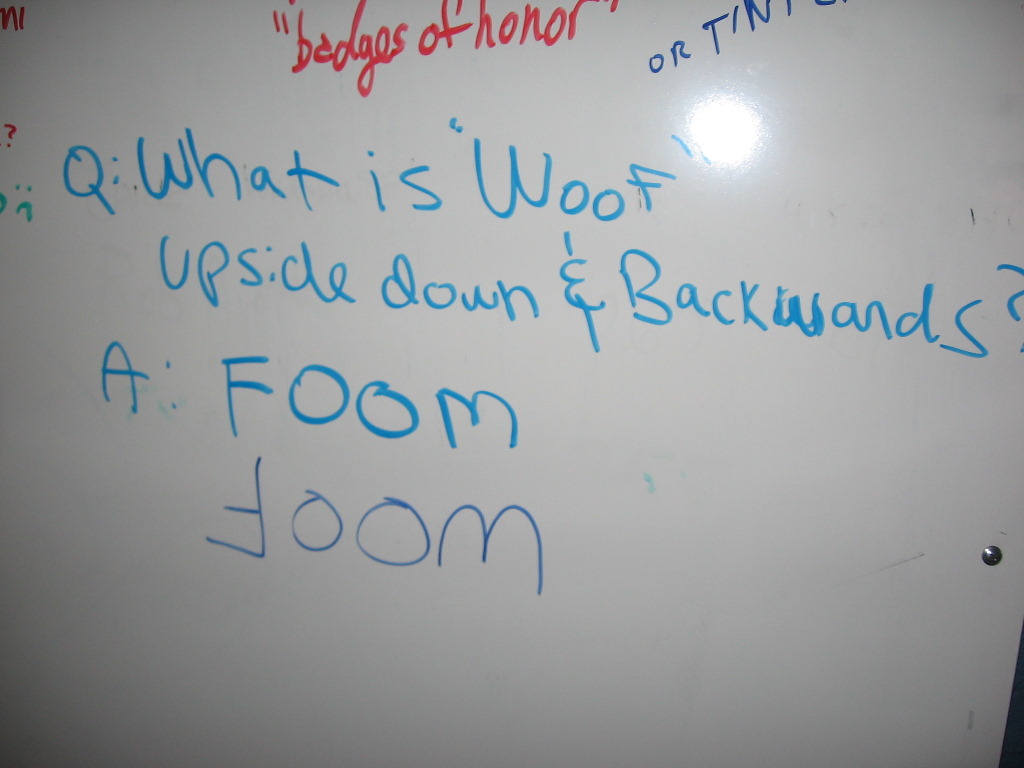 "badges of honor"
OR
?
Q: What is "Woof"
Upside down & Backwards?
A: FOOM
ⅎOOM